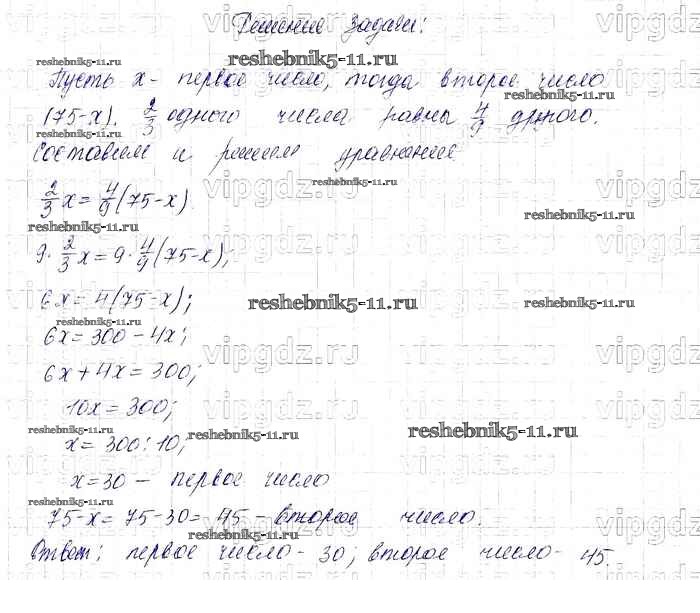 Решение задачи:
Пусть x - первое число, тогда второе число
(75-x). 2/3 одного числа равны 4/9 другого.
Составим и решим уравнение
2/3 x = 4/9 (75-x)
9 · 2/3 x = 9 · 4/9 (75-x);
6x = 4(75-x);
6x = 300 - 4x;
6x + 4x = 300;
10x = 300;
x = 300 : 10;
x = 30 - первое число
75-x = 75-30 = 45 - второе число.
Ответ: первое число - 30; второе число - 45.
reshebnik5-11.ru
vipgdz.ru